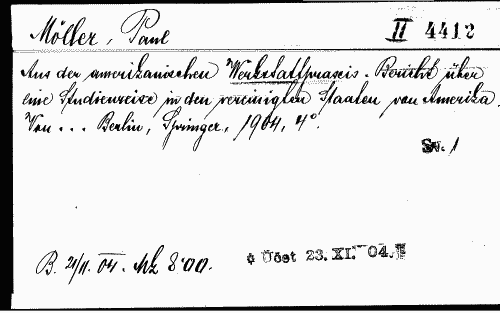 Möller, Paul II 4412
Aus der amerikanischen Werkstattpraxis. Bericht über
eine Studienreise in den vereinigten Staaten von Amerika.
Von... Berlin, Springer, 1904, 4°.
Sv. 1
B. 21/11. 04. Mk 8.00. 23. XI. 04.